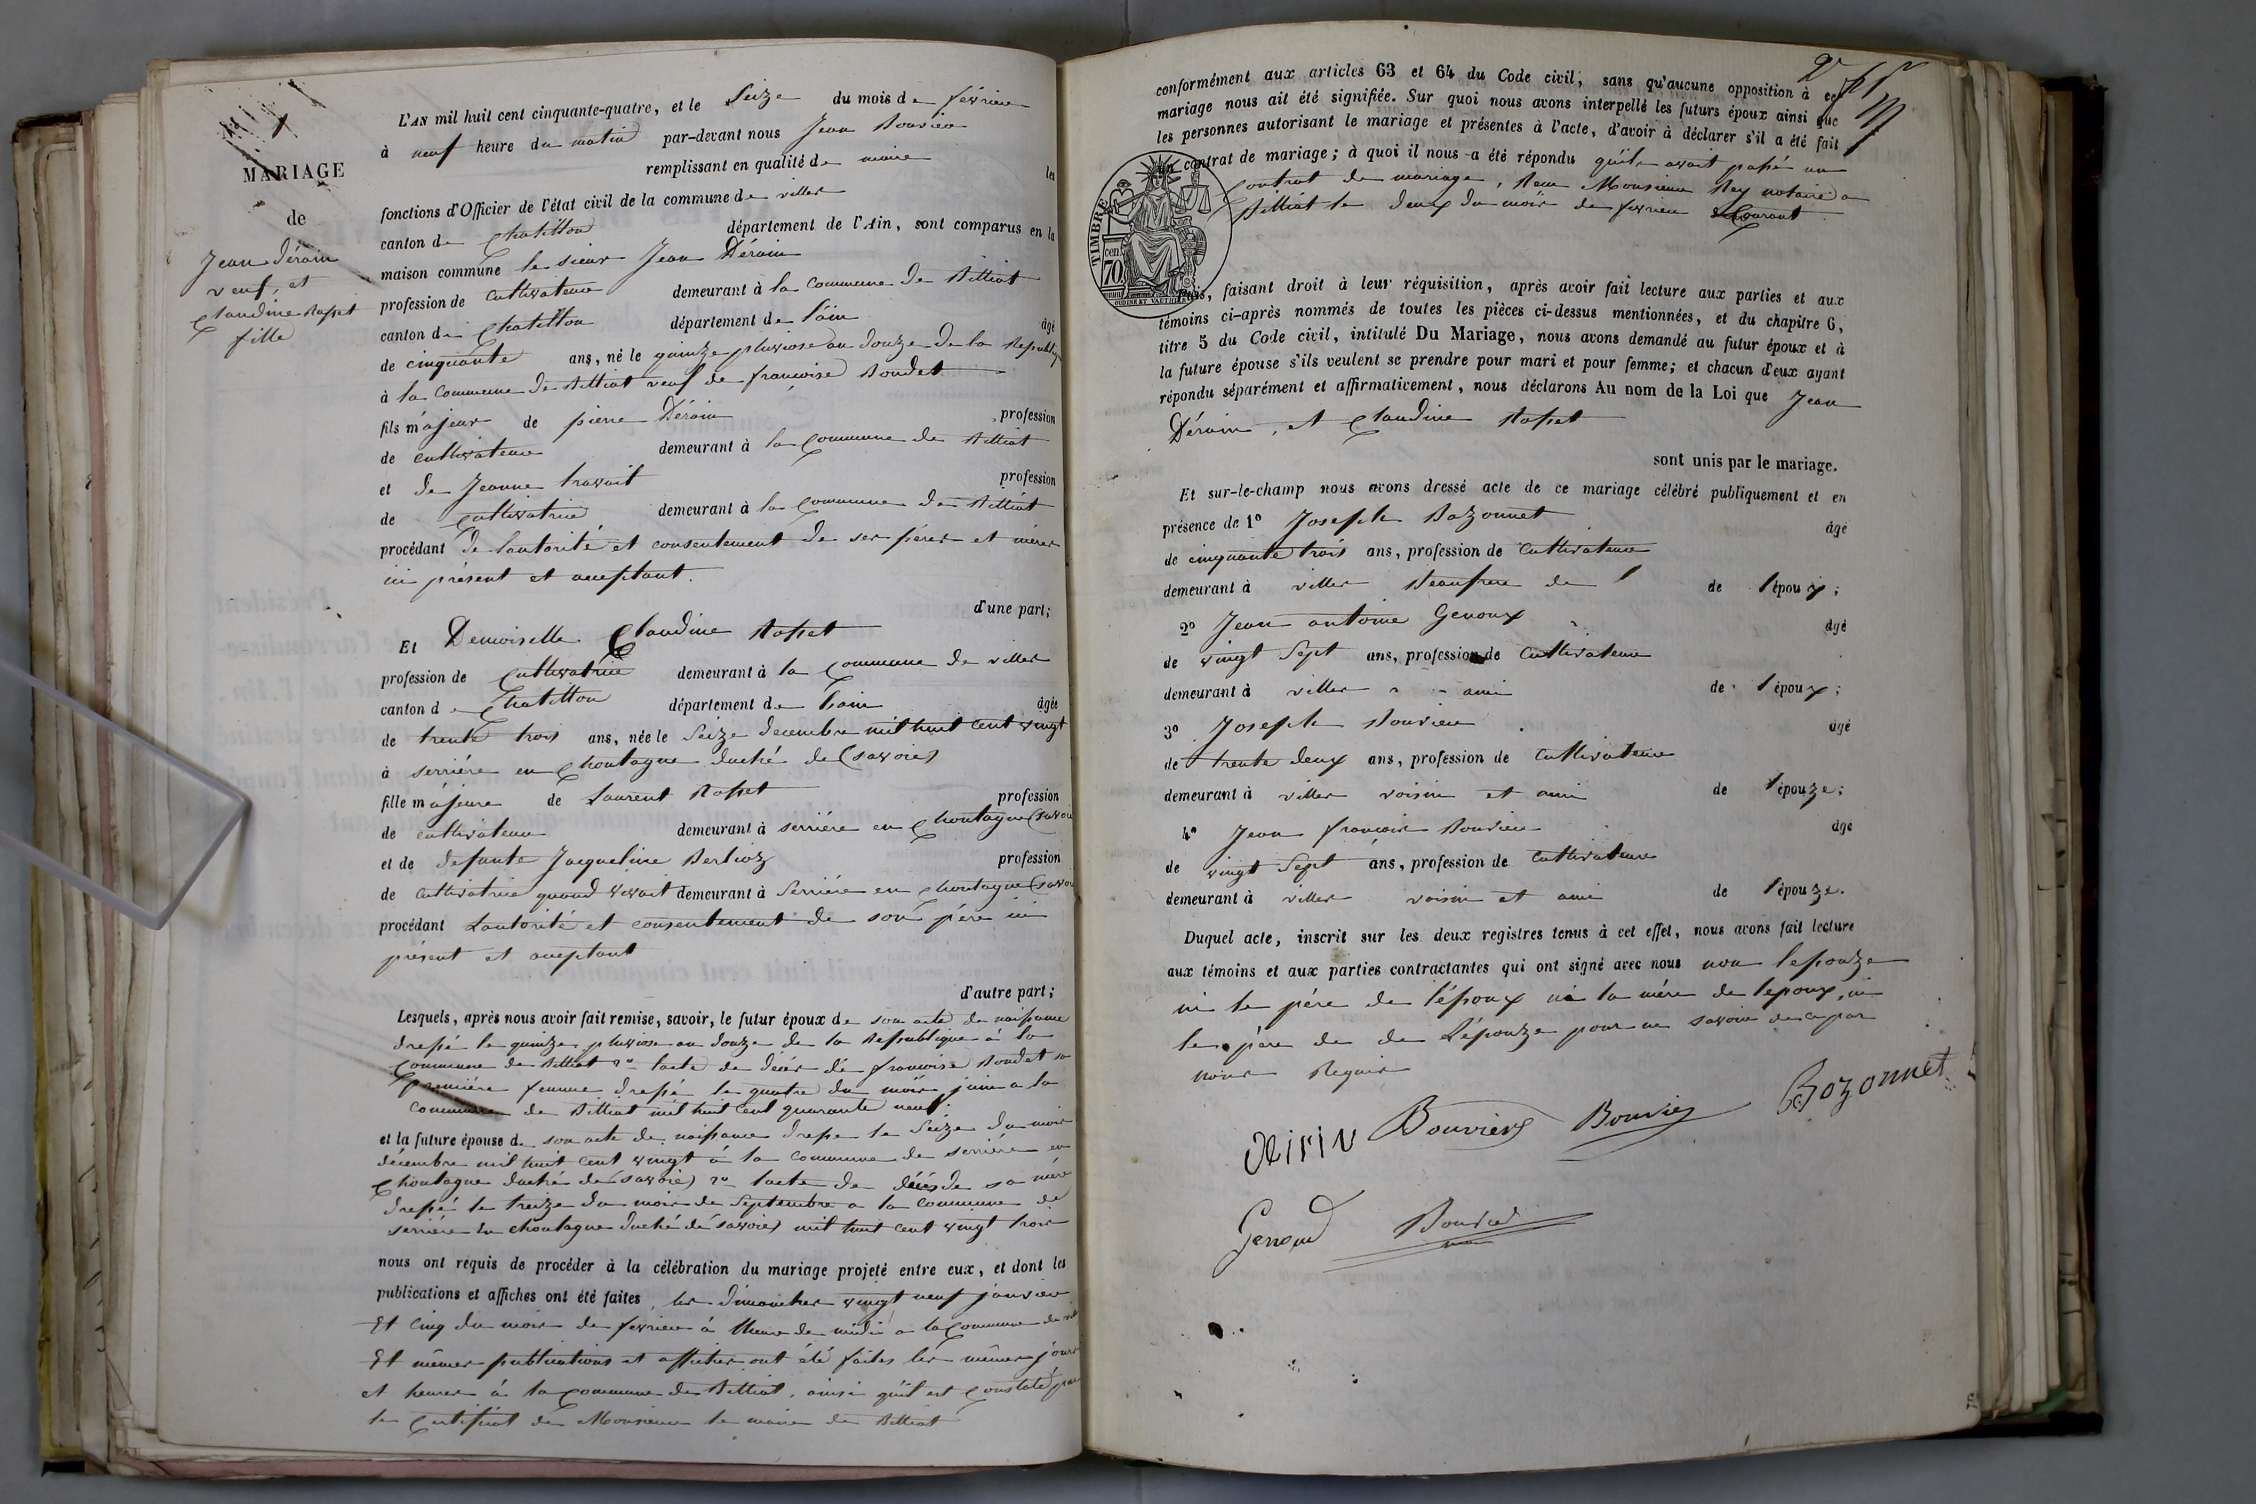 MARIAGE
de
Jean Dérain
veuf, et
Claudine Rosset
fille
L'AN mil huit cent cinquante-quatre, et le Seize du mois de février
à neuf heure du matin par-devant nous Jean Bouvier
remplissant en qualité de maire les
fonctions d'Officier de l'état civil de la commune de villes
canton de Chatillon département de l'Ain, sont comparus en la
maison commune le sieur Jean Dérain
profession de Cultivateur demeurant à la Commune de Billiat
canton de Chatillon département de l'ain âgé
de cinquante ans, né le quinze pluviose an douze de la Republique
à la Commune de Billiat veuf de francoise Boudet
fils májeur de pierre Dérain profession
de cultivateur demeurant à la Commune de Billiat
et de Jeanne travait profession
de Cultivatrice demeurant à la Commune de Billiat
procédant de l'autorité et consentement de ses péres et méres
ici présent et acceptant.
d'une part;
Et Demoiselle Claudine Rosset
profession de Cultivatrice demeurant à la Commune de villes
canton de Chatillon département de l'ain âgée
de trente trois ans, née le Seize decembre mil huit cent vingt
à serriére en Choutagne duché de (savoie)
fille májeure de Laurent Rosset profession
de cultivateur demeurant à serriére en Choutagne (savoie
et de defunte Jacqueline Berlioz profession
de Cultivatrice quand vivait demeurant à Serriére en Choutagne (savoie
procédant L'autorité et consentement de son pére ici
présent et acceptant
d'autre part;
Lesquels, après nous avoir fait remise, savoir, le futur époux de son acte de naissance
dressé le quinze pluviose an douze de la Republique à la
Commune de Billiat 2º l'acte de décés de francoise Boudet sa
premiére femme dressé le quatre du mois juin a la
Commune de Billiat mil huit cent quarante neuf.
et la future épouse de son acte de naissance dressé le Seize du mois
décembre mil huit cent vingt à la Commune de serriére en
Choutagne duché de (savoie) 2º l'acte de décés de sa mére
dressé le treize du mois de Septembre a la Commune de
serriére en choutagne duché de (savoie) mil huit cent vingt trois
nous ont requis de procéder à la célébration du mariage projeté entre eux, et dont les
publications et affiches ont été faites, les dimanches vingt neuf janvier
Et Cinq du mois de fevrier á l'heure de midi a la Commune de
Et mêmes publications et affiches ont été faites les mêmes jours
et heures á la Commune de Billiat, ainsi qu'il est Constaté par
le Certificat de Monsieur le maire de Billiat
conformément aux articles 63 et 64 du Code civil, sans qu'aucune opposition à ce
mariage nous ait été signifiée. Sur quoi nous avons interpellé les futurs époux ainsi que
les personnes autorisant le mariage et présentes à l'acte, d'avoir à déclarer s'il a été fait
un contrat de mariage; à quoi il nous a été répondu qu'ils avait passé un
Contrat de mariage, Recu Monsieur Rey notaire a
Billiat le deux du mois de fevrier Courant
TIMBRE
cen.
70
OUDINE ET VAUTHIER
Puis, faisant droit à leur réquisition, après avoir fait lecture aux parties et aux
témoins ci-après nommés de toutes les pièces ci-dessus mentionnées, et du chapitre 6,
titre 5 du Code civil, intitulé Du Mariage, nous avons demandé au futur époux et à
la future épouse s'ils veulent se prendre pour mari et pour femme; et chacun d'eux ayant
répondu séparément et affirmativement, nous déclarons Au nom de la Loi que Jean
Dérain, et Claudine Rosset
sont unis par le mariage.
Et sur-le-champ nous avons dressé acte de ce mariage célébré publiquement et en
présence de 1º Joseph Bozonnet âgé
de cinquante trois ans, profession de Cultivateur
demeurant à villes Beaufrere de l de l'époux;
2º Jean antoine Genoux âgé
de vingt Sept ans, profession de Cultivateur
demeurant à villes ami de l'époux;
3º Joseph Bouvier âgé
de trente deux ans, profession de Cultivateur
demeurant à villes voisin et ami de l'épouze;
4º Jean francois Bouvier âgé
de vingt Sept ans, profession de Cultivateur
demeurant à villes voisin et ami de l'épouze.
Duquel acte, inscrit sur les deux registres tenus à cet effet, nous avons fait lecture
aux témoins et aux parties contractantes qui ont signé avec nous non l'epouze
ni le pére de l'époux ni la mére de l'epoux, ni
le pére de de L'épouze pour ne savoir de ce par
nous Requis
Bouvier Bouvier Bozonnet
Genoud Bouvier